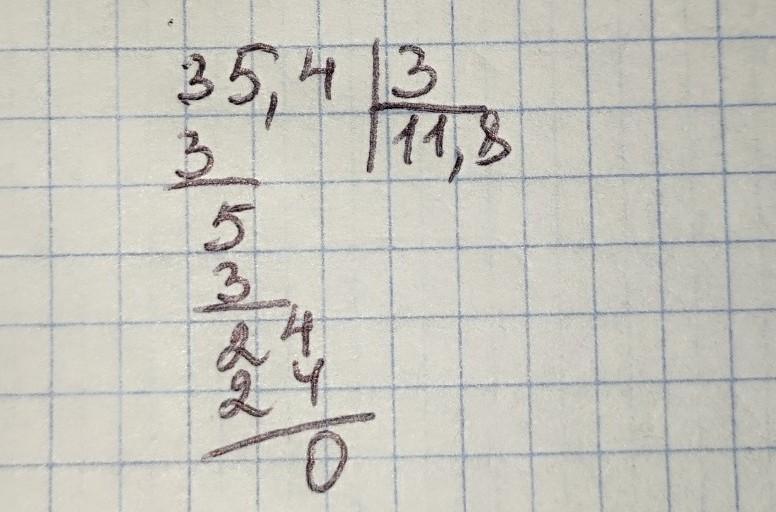 35,4 3
11,8
3
5
3
24
24
0